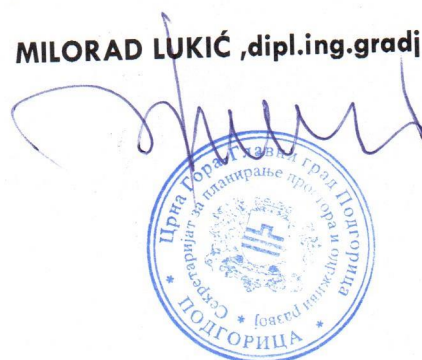 MILORAD LUKIĆ ,dipl.ing.gradj
Црна Гора Главни град Подгорица
Секретаријат за планирање простора и одрживи развој
* ПОДГОРИЦА *